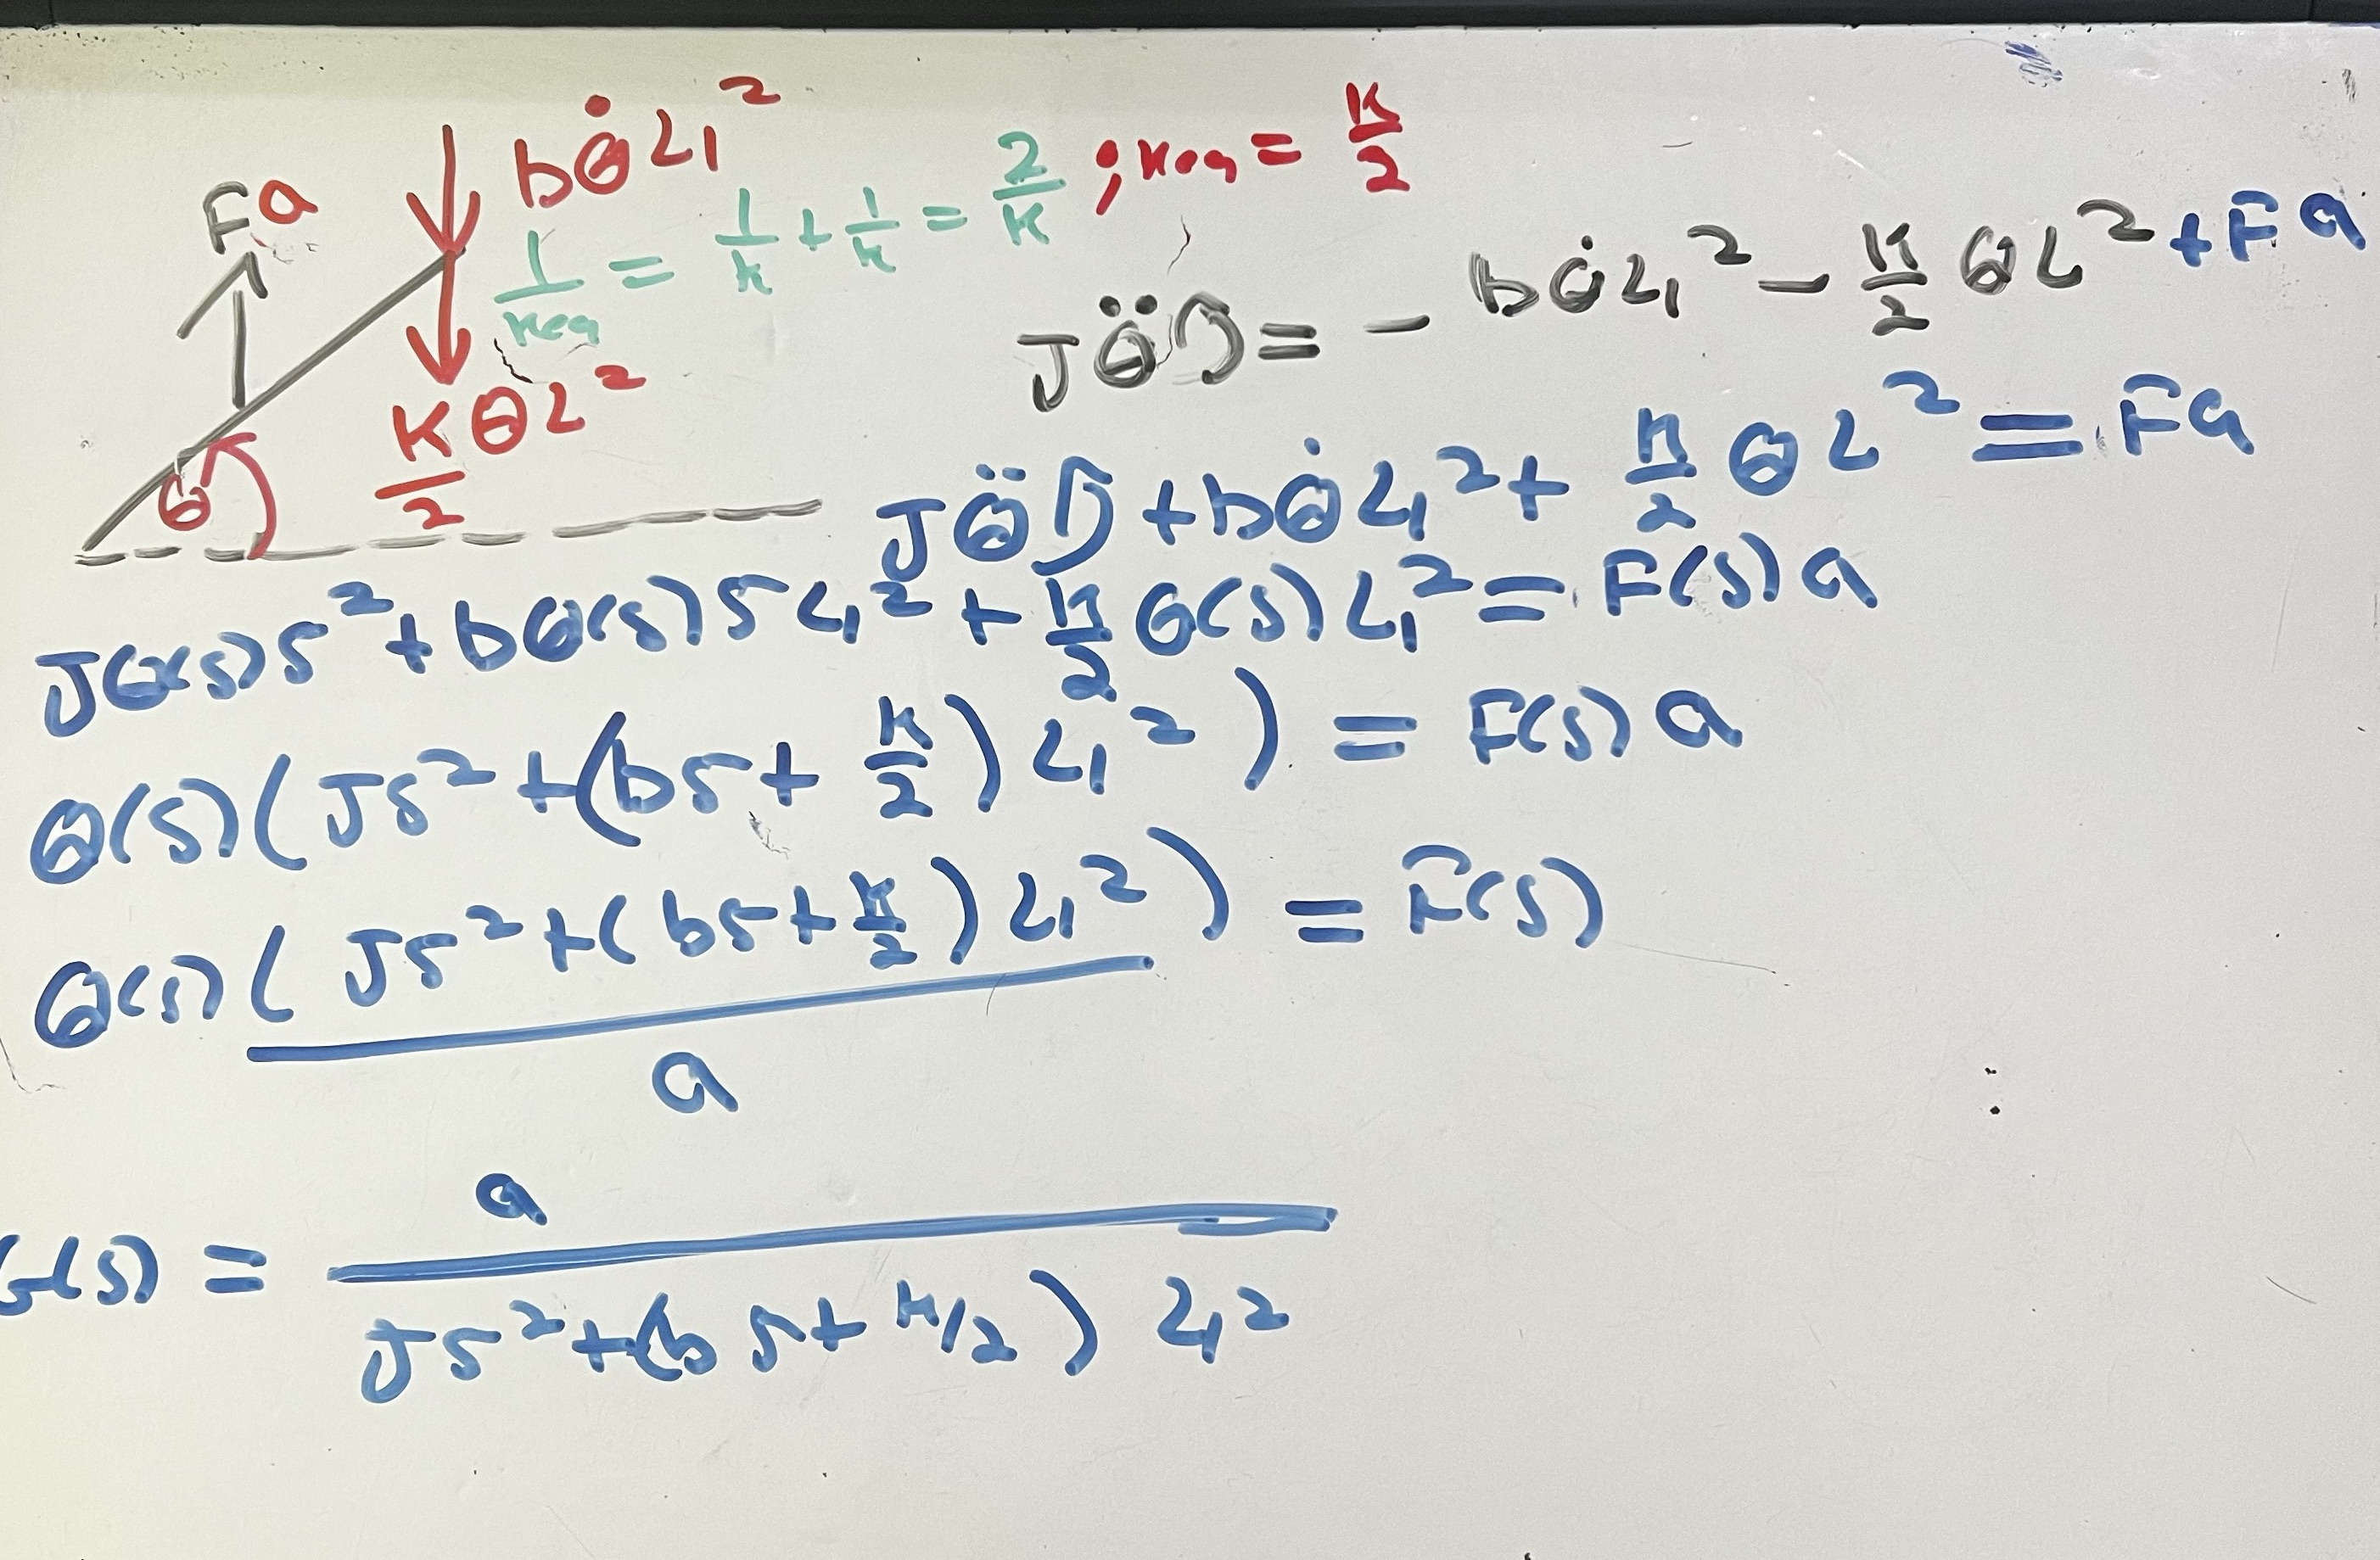 Fa
bθ̇L₁²
1/keq = 1/k + 1/k = 2/k ; keq = k/2
K/2 θL²
θ
Jθ̈ ↶ = - bθ̇L₁² - K/2 θL² + Fa
Jθ̈ ↶ + bθ̇L₁² + K/2 θL² = Fa
Jθ(s)s² + bθ(s)sL₁² + K/2 θ(s)L₁² = F(s)a
θ(s)(Js² + (bs + K/2)L₁²) = F(s)a
θ(s)(Js² + (bs + K/2)L₁²)/a = F(s)
G(s) = a/(Js² + (bs + K/2)L₁²)